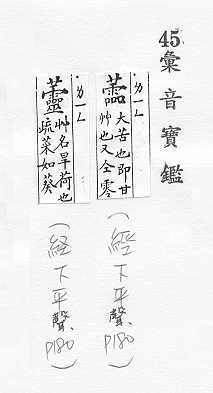 45.彙音寶鑑
ㄌㄧㄥ
蘦 大苦也即甘
艸也又仝零
(經下平聲、P180)
ㄌㄧㄥ
䖅 艸名旱荷也
疏菜如葵
(経下平聲、P180)